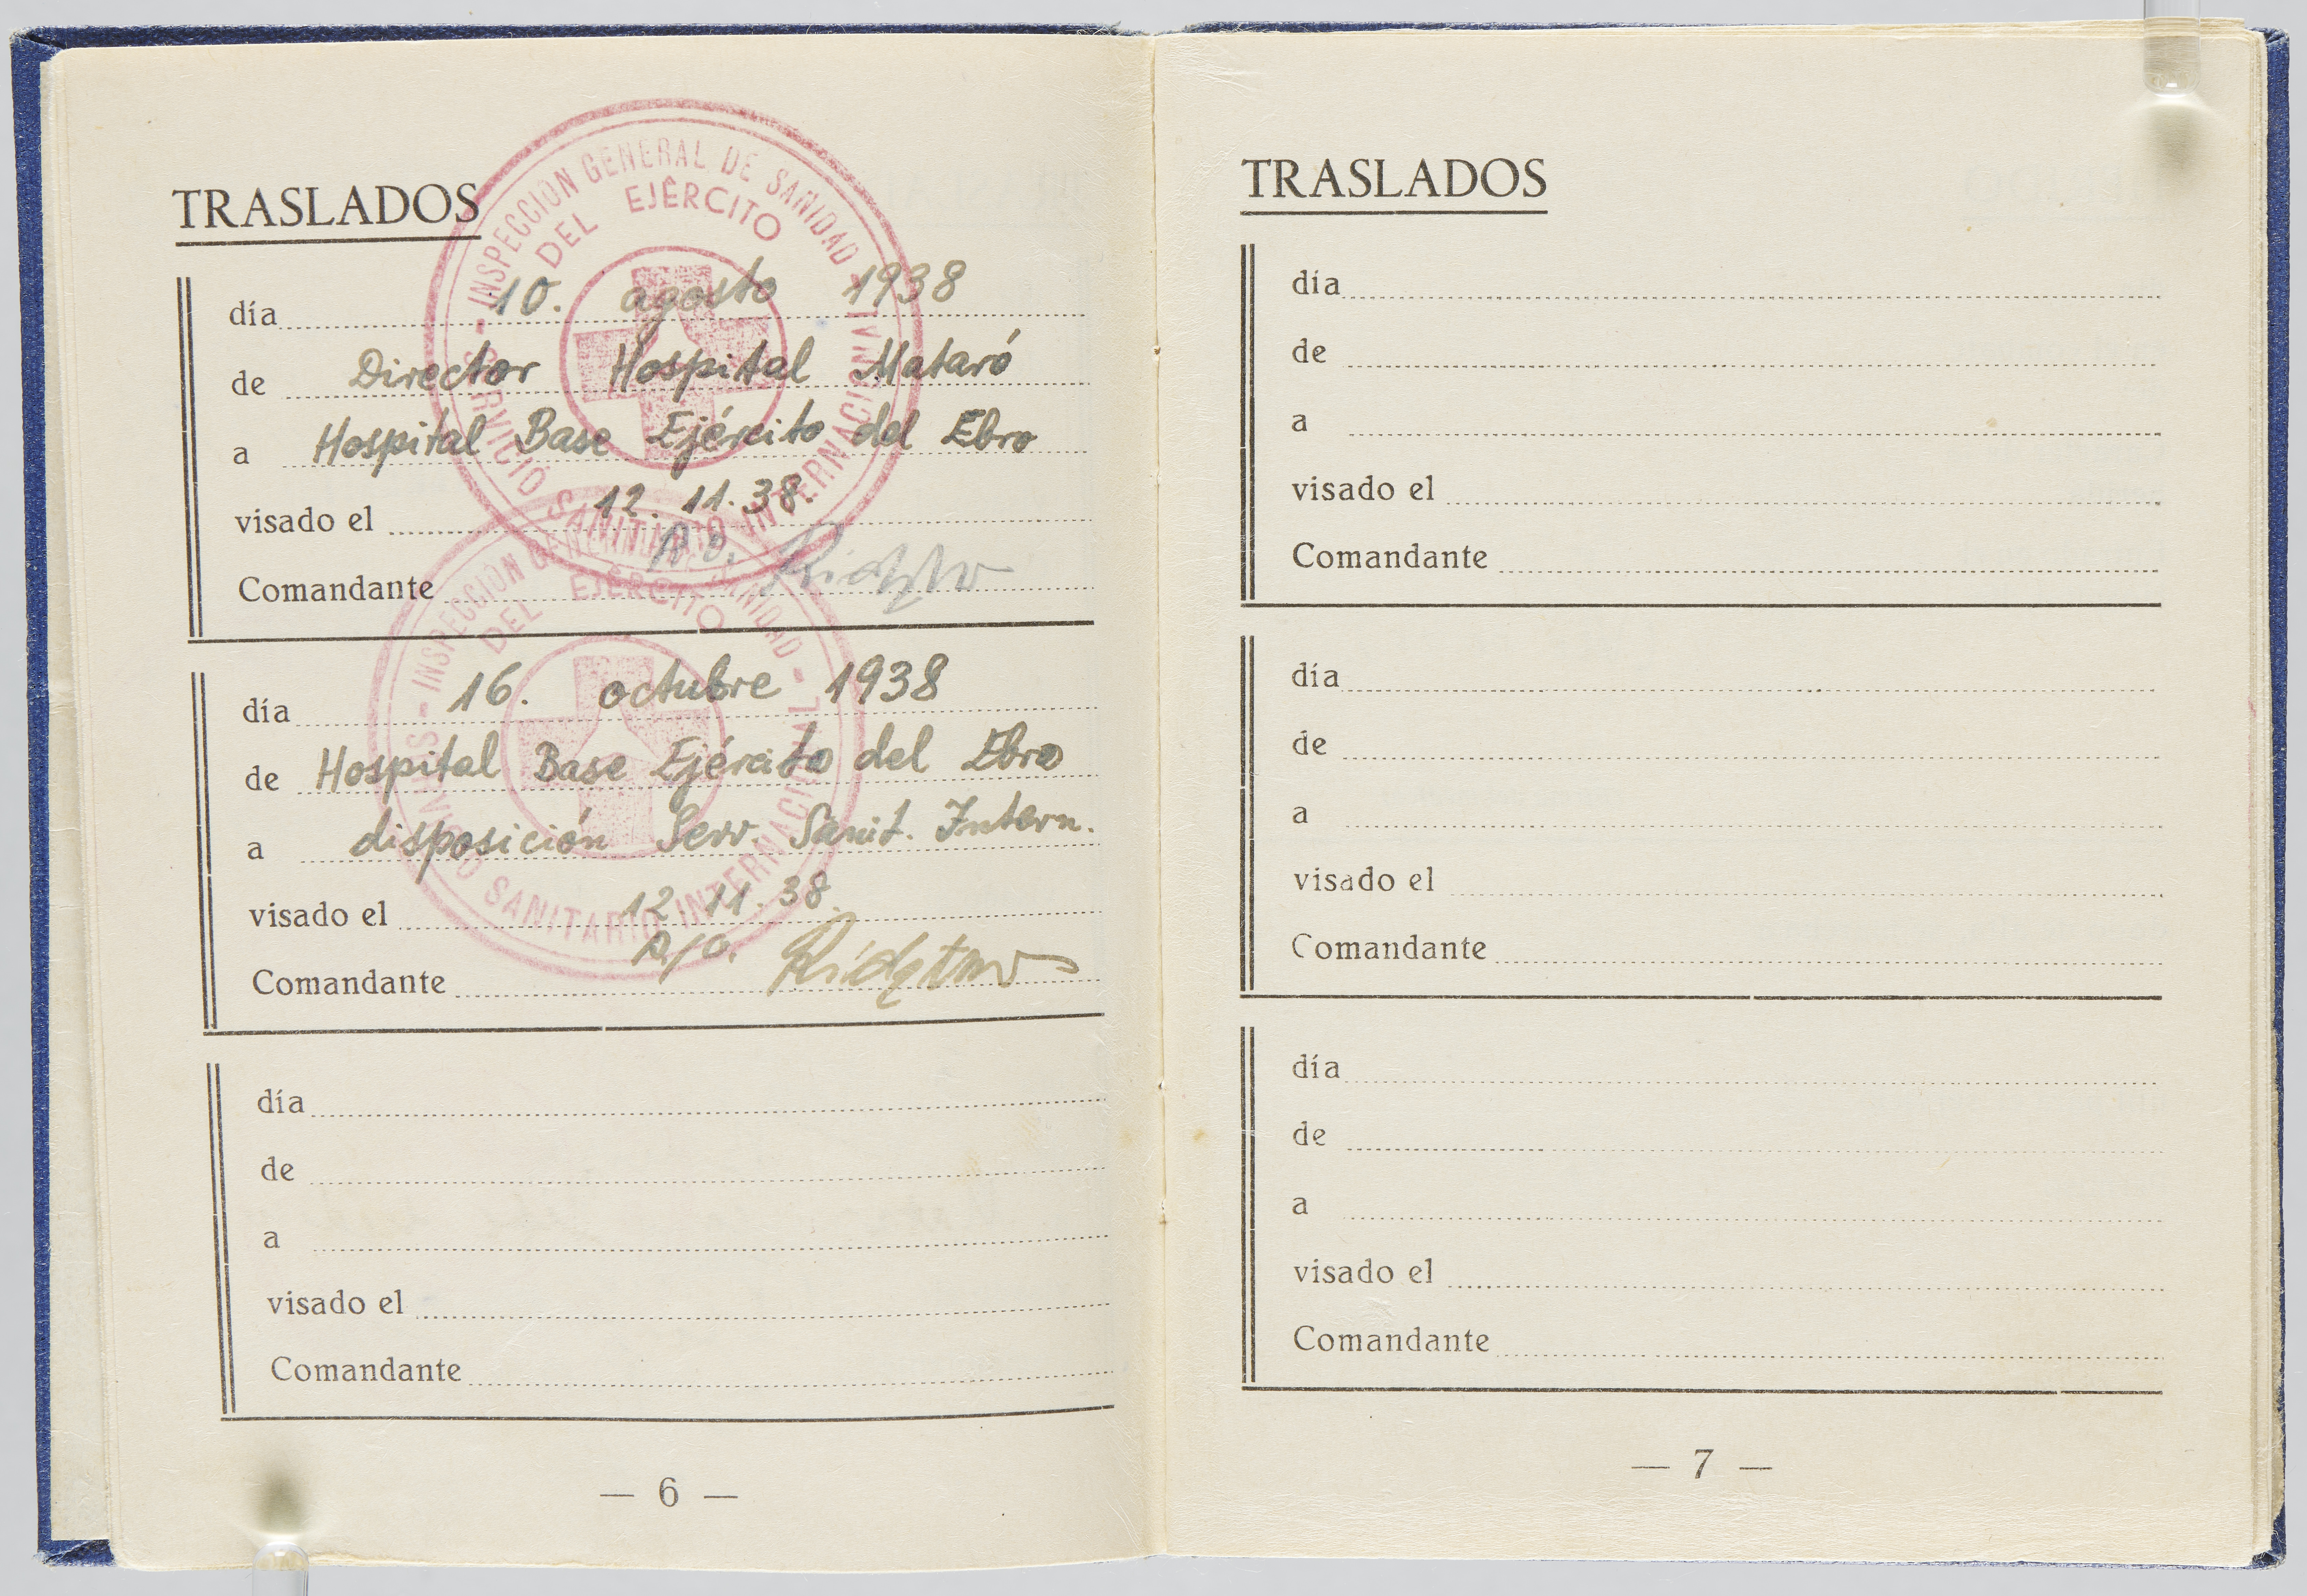 TRASLADOS
INSPECCION GENERAL DE SANIDAD
DEL EJÉRCITO
SERVICIO SANITARIO INTERNACIONAL
día 10. agosto 1938
de Director Hospital Mataró
a Hospital Base Ejército del Ebro
visado el 12. 11. 38.
Comandante
INSPECCION GENERAL DE SANIDAD
DEL EJÉRCITO
SERVICIO SANITARIO INTERNACIONAL
día 16. octubre 1938
de Hospital Base Ejército del Ebro
a disposición Serv. Sanit. Intern.
visado el 12. 11. 38.
Comandante
día
de
a
visado el
Comandante
— 6 —
TRASLADOS
día
de
a
visado el
Comandante
día
de
a
visado el
Comandante
día
de
a
visado el
Comandante
— 7 —